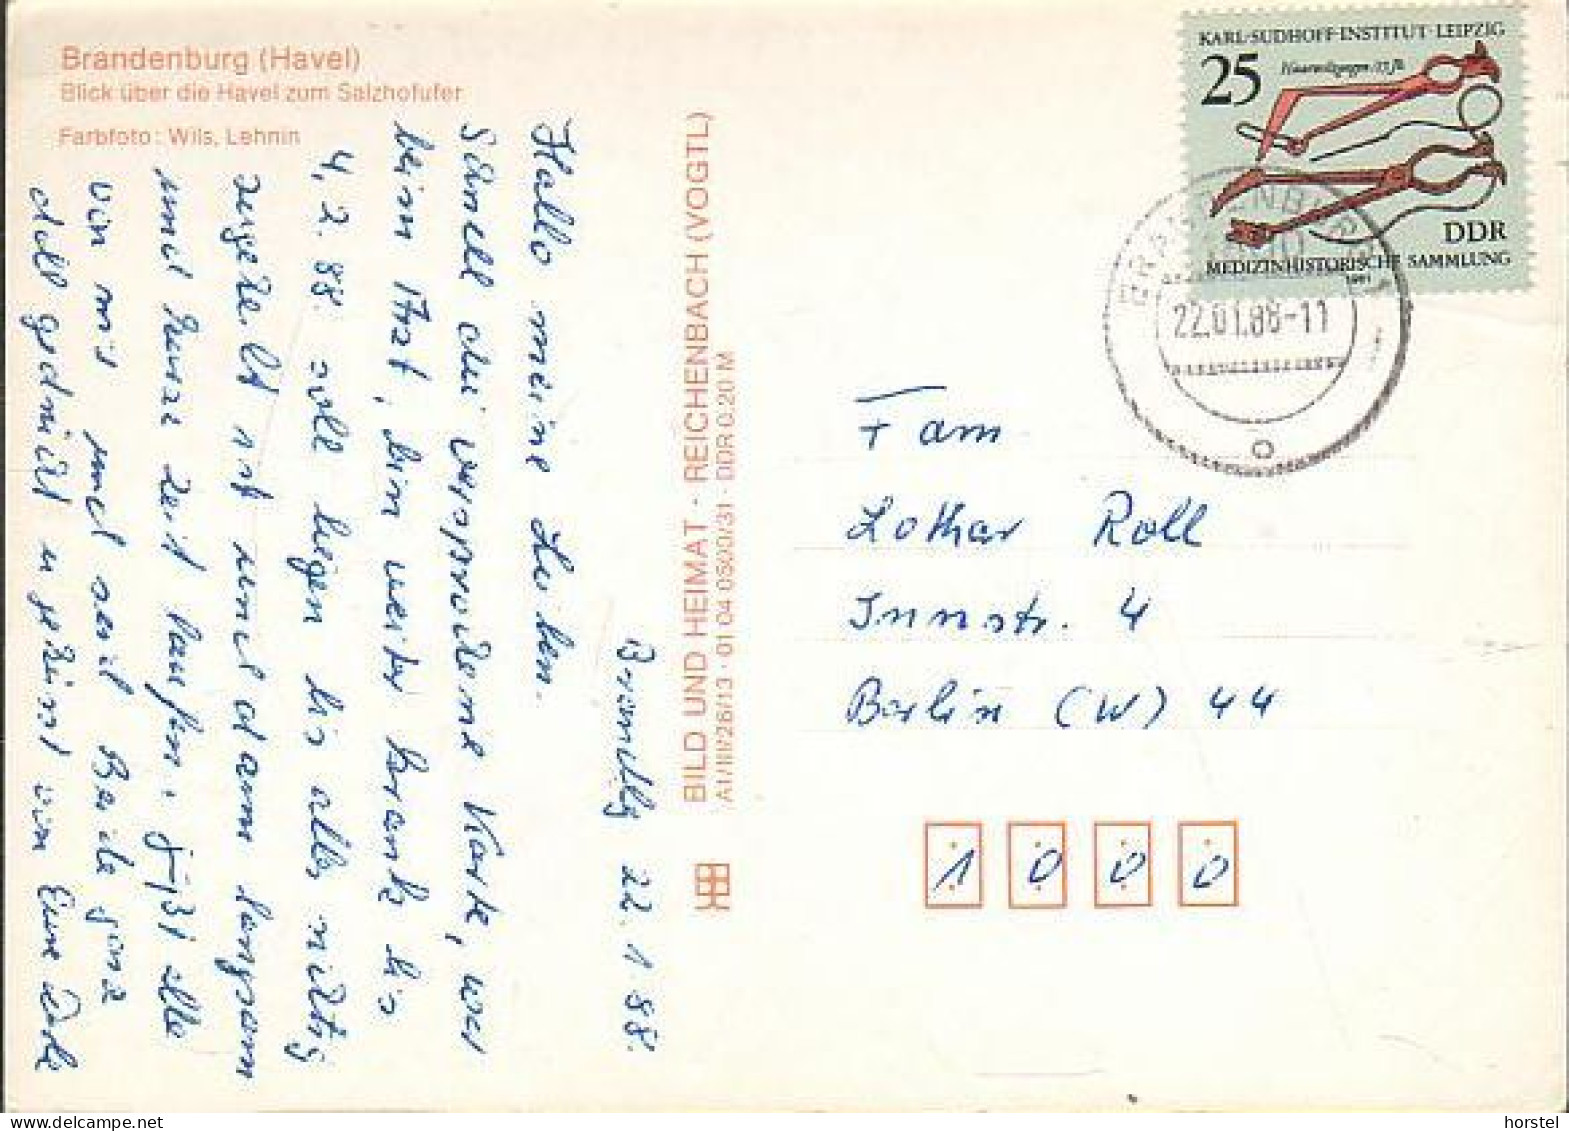 Brandenburg (Havel)
Blick über die Havel zum Salzhofufer
Farbfoto: Wils, Lehnin
BILD UND HEIMAT · REICHENBACH (VOGTL)
A1/III/26/13 · 01 04 0500/31 · DDR 0.20 M
KARL-SUDHOFF-INSTITUT · LEIPZIG
25
DDR
MEDIZINHISTORISCHE SAMMLUNG
1981
BRANDENBURG
22.01.88-11
Brandbg 22.1.88.
Hallo meine Lieben.
Schnell die versprochene Karte, war
beim Arzt, bin weiter krank bis
4.2.88. soll liegen bis alles richtig
geheilt ist und dann langsam
und kurze Zeit laufen. alle
von mir und seid Beide ganz
doll gedrückt u geküsst von Eure
Fam
Lothar Roll
Innstr. 4
Berlin (W) 44
1000
horstel